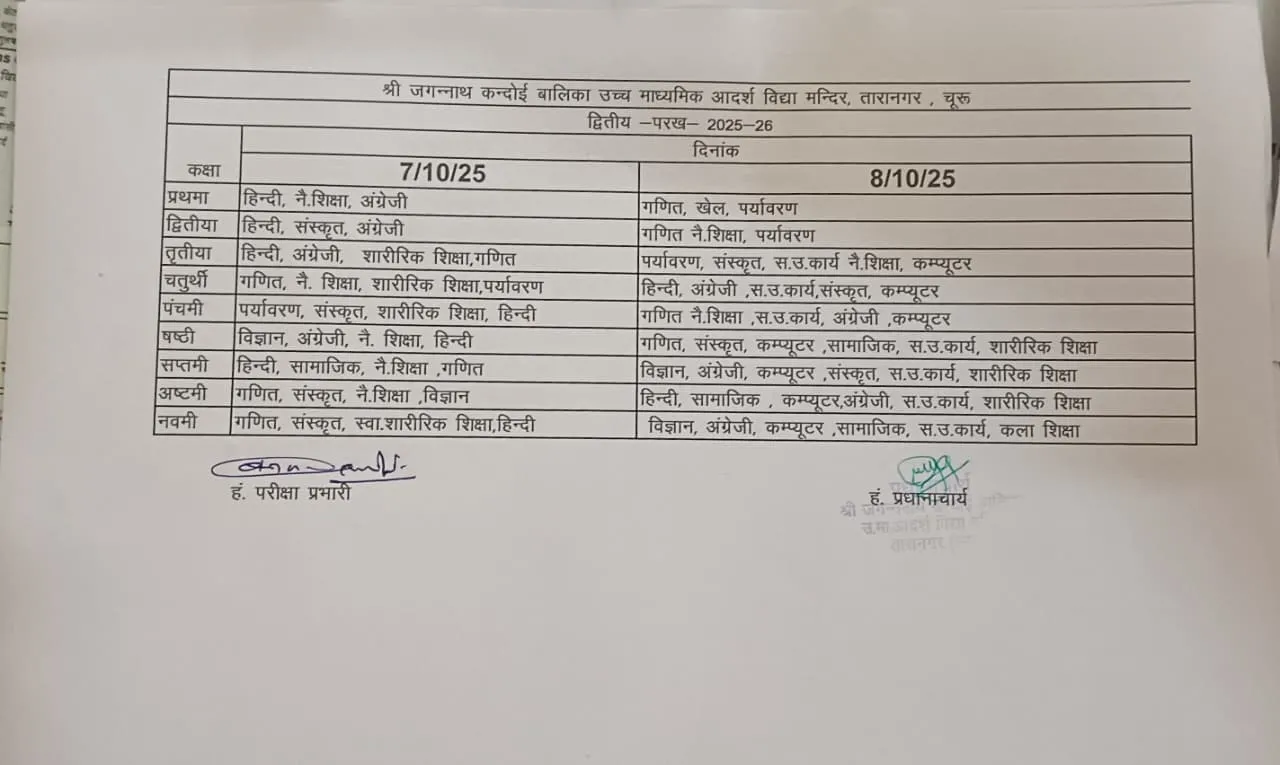 श्री जगन्नाथ कन्दोई बालिका उच्च माध्यमिक आदर्श विद्या मन्दिर, तारानगर , चूरू
द्वितीय –परख– 2025–26
कक्षा दिनांक
7/10/25 8/10/25
प्रथमा हिन्दी, नै.शिक्षा, अंग्रेजी गणित, खेल, पर्यावरण
द्वितीया हिन्दी, संस्कृत, अंग्रेजी गणित नै.शिक्षा, पर्यावरण
तृतीया हिन्दी, अंग्रेजी, शारीरिक शिक्षा,गणित पर्यावरण, संस्कृत, स.उ.कार्य नै.शिक्षा, कम्प्यूटर
चतुर्थी गणित, नै. शिक्षा, शारीरिक शिक्षा,पर्यावरण हिन्दी, अंग्रेजी ,स.उ.कार्य,संस्कृत, कम्प्यूटर
पंचमी पर्यावरण, संस्कृत, शारीरिक शिक्षा, हिन्दी गणित नै.शिक्षा ,स.उ.कार्य, अंग्रेजी ,कम्प्यूटर
षष्ठी विज्ञान, अंग्रेजी, नै. शिक्षा, हिन्दी गणित, संस्कृत, कम्प्यूटर ,सामाजिक, स.उ.कार्य, शारीरिक शिक्षा
सप्तमी हिन्दी, सामाजिक, नै.शिक्षा ,गणित विज्ञान, अंग्रेजी, कम्प्यूटर ,संस्कृत, स.उ.कार्य, शारीरिक शिक्षा
अष्टमी गणित, संस्कृत, नै.शिक्षा ,विज्ञान हिन्दी, सामाजिक , कम्प्यूटर,अंग्रेजी, स.उ.कार्य, शारीरिक शिक्षा
नवमी गणित, संस्कृत, स्वा.शारीरिक शिक्षा,हिन्दी विज्ञान, अंग्रेजी, कम्प्यूटर ,सामाजिक, स.उ.कार्य, कला शिक्षा
हं. परीक्षा प्रभारी हं. प्रधानाचार्य
उ.मा.आदर्श विद्या
तारानगर